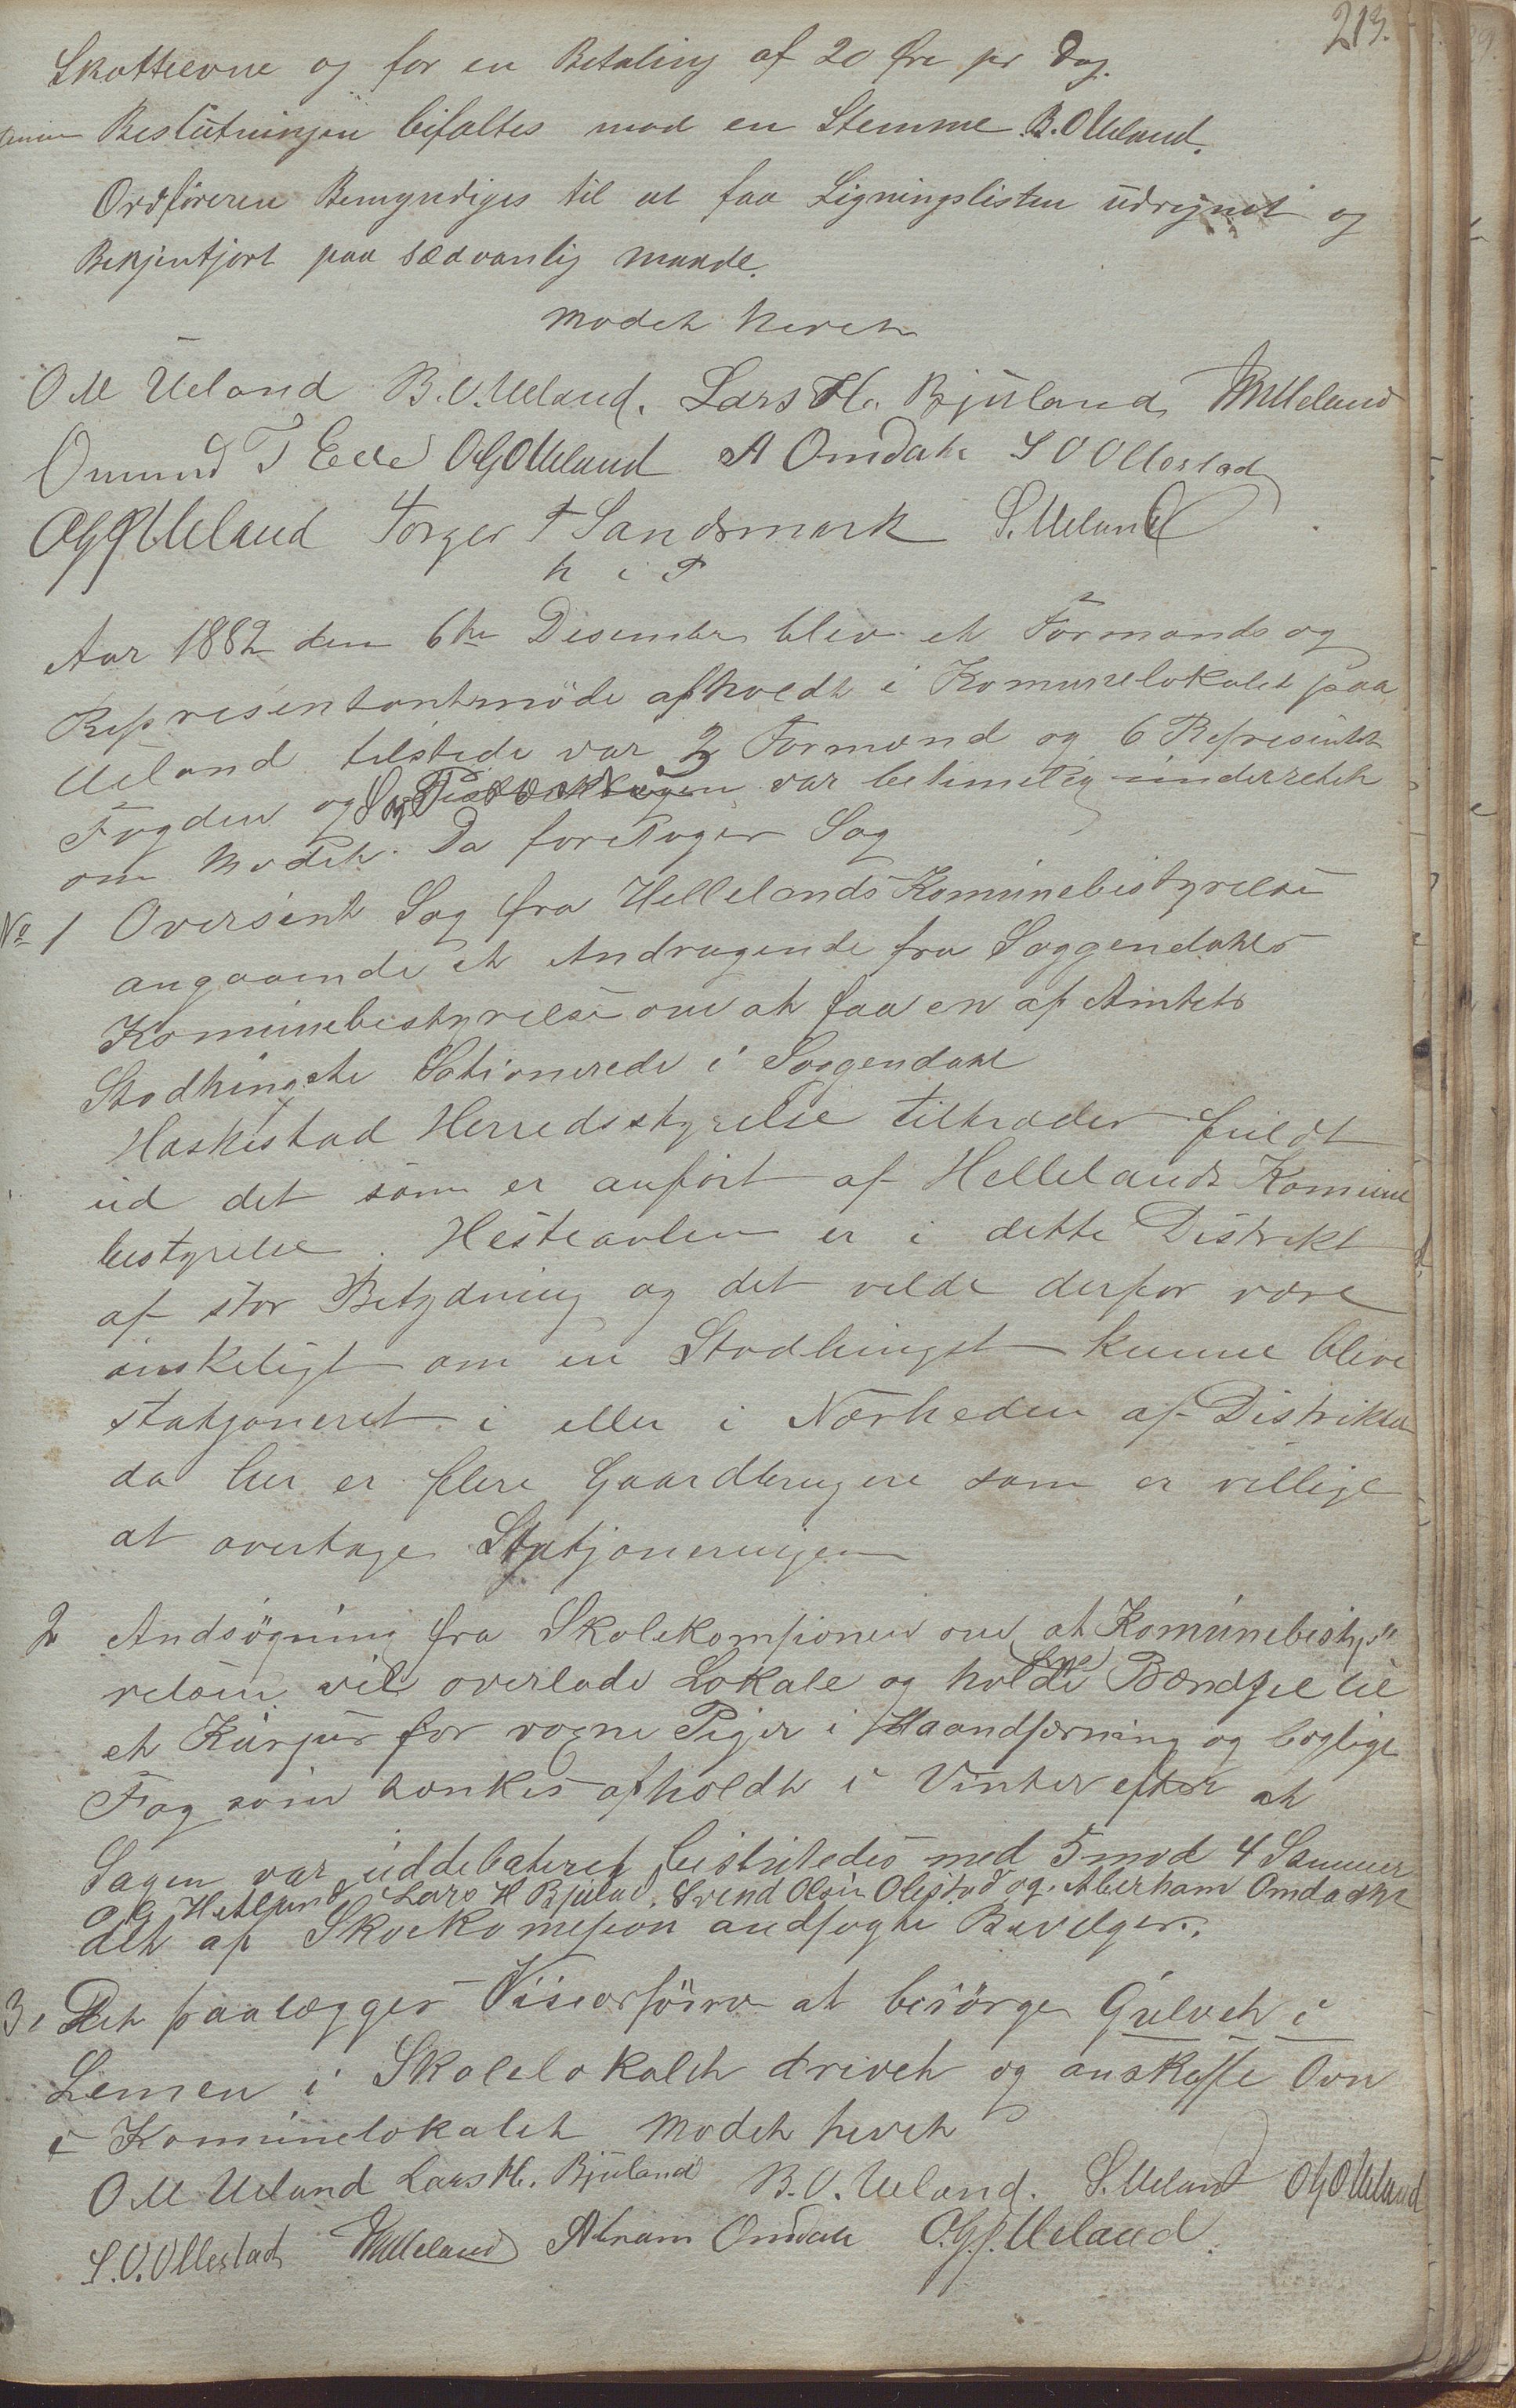 213.
Skatteevne og for en Betaling af 20 Øre pr Dag.
Beslutningen bifaltes mod en Stemme B. O Ueland.
Ordføreren Bemyndiges til at faa Ligningslisten udregnet og
Bekjentgjort paa sædvanlig maade.
Modet hevet
O M Ueland B. O. Ueland. Lars H. Bjuland
Omund T Eeie O G O Ueland A Omdahl S O Ollestad
O G P Ueland Torger T Sandsmark S. Ueland
Aar 1882 den 6te Desember blev et Formands og
Representantsmøde afholdt i Komunelokalet paa
Ueland tilstede var 3 Formænd og 6 Represent
Fogden og var betimelig underrettet
om Modet. Da foretoges Sag
No 1 Oversent Sag fra Hellelands Komunebestyrelse
angaaende et Andragende fra Soggendahls
Komunebestyrelse om at faa en af Amtets
Stodhingste Stationerede i Soggendahl
Heskestad Herredsstyrelse tiltræder fuldt
ud det som er anført af Hellelands Komune
bestyrelse. Hesteavlen er i dette Distrikt
af stor Betydning og det vilde derfor være
ønskeligt om en Stodhingst kunne blive
statjoneret i eller i Nærheden af Distriktet
da her er flere Gaardbrugere som er villige
at overtage Statjoneringen
2 Andsøgning fra Skolekomsionen om at Komunebesty
relsen vil overlade Lokale og holde Brændsel til
et Kursus for vogne Piger i Haandgjerning og boglige
Fag som tænkes afholdt i Vinter efter at
Sagen var uddebateret besluttedes med 5 mod 4 Stemmer
Lars H Bjuland. Svend Olsen Olestad og Aberham Omdahl
det af Skolekomesion andsøgte Bevilges.
3. Det paalægges Viseorfører at besørge Gulvet i
Lemen i Skolelokalet drivet og anskaffe Ovn
i Komunelokalet Modet hevet
O M Ueland Lars H. Bjuland B. O. Ueland. S. Ueland O G O Ueland
S. O. Ollestad Abram Omdahl O. G. P. Ueland.